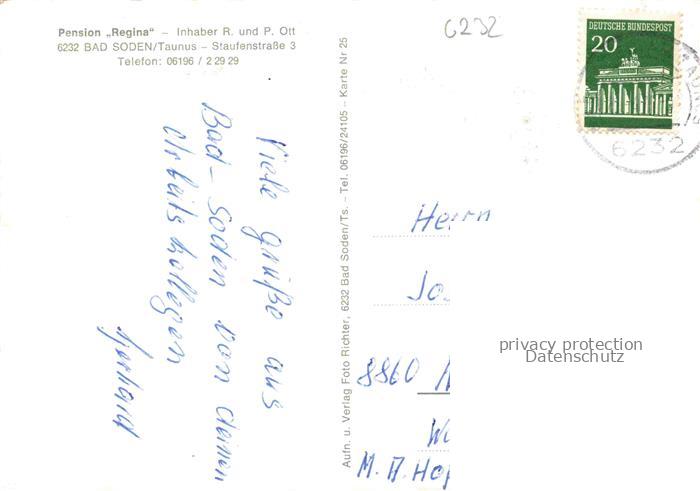 Pension „Regina“ – Inhaber R. und P. Ott
6232 BAD SODEN/Taunus – Staufenstraße 3
Telefon: 06196 / 2 29 29
6232
DEUTSCHE BUNDESPOST
20
6232
Viele grüße aus
Bad-Soden von deinen
Arbeitskollegen
Gerhard
Aufn. u. Verlag Foto Richter, 6232 Bad Soden/Ts. – Tel. 06196/24105 – Karte Nr 25
Herrn
Jo
8860
privacy protection
Datenschutz